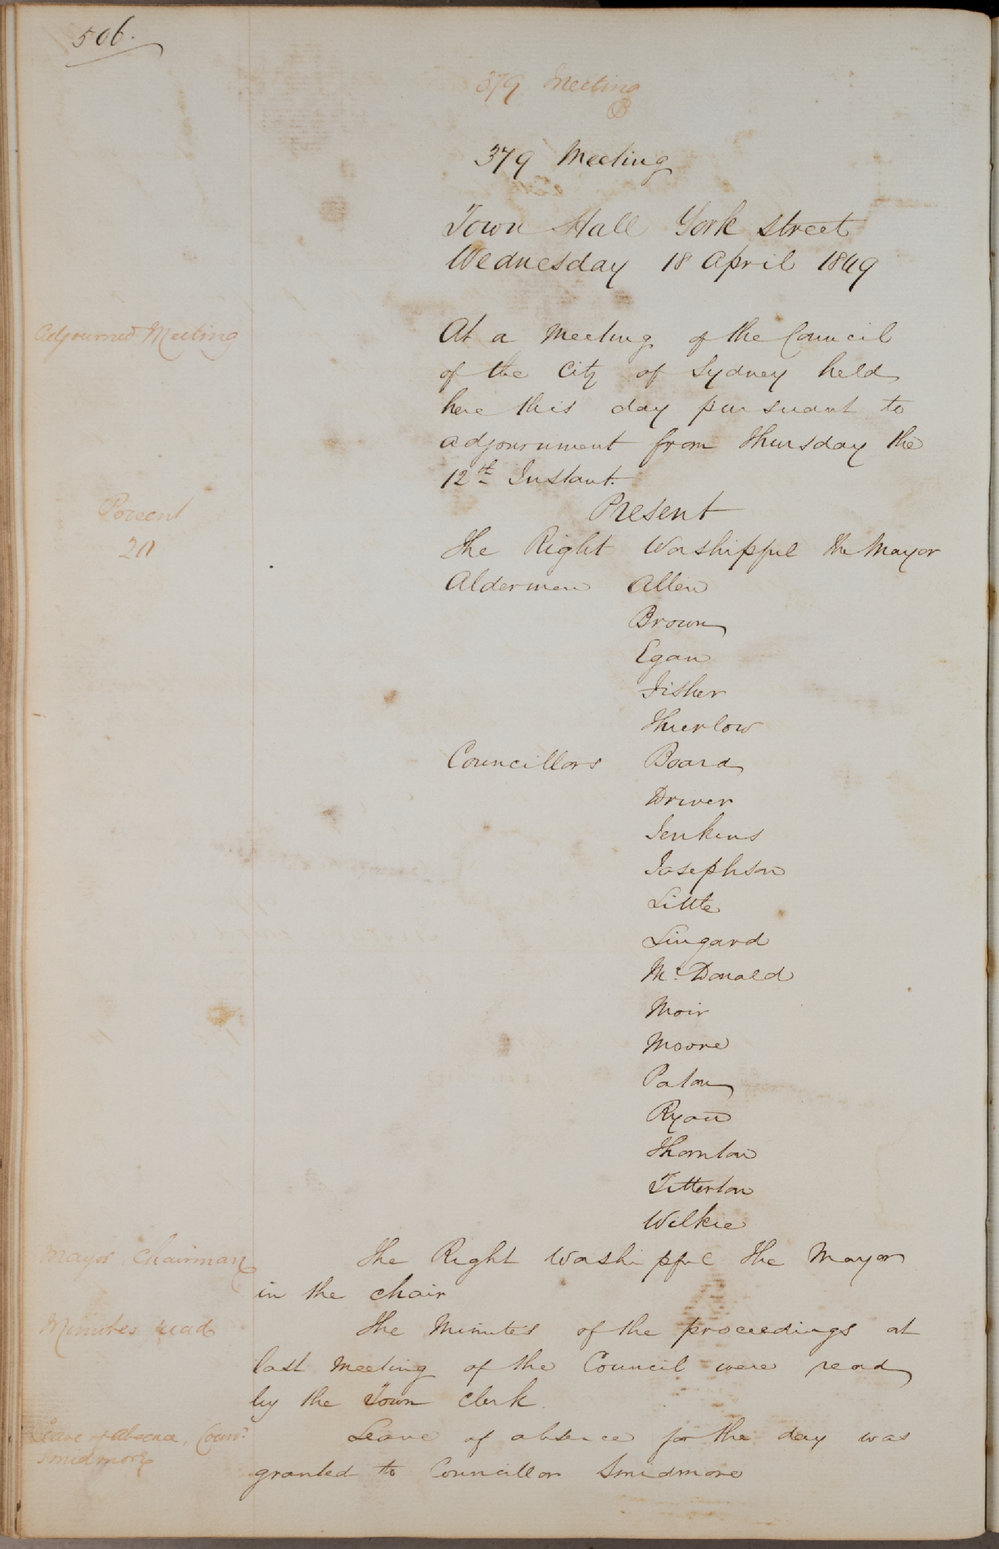 506.
379 Meeting
379 Meeting
Town Hall York street
Wednesday 18 April 1849
Adjourned Meeting
At a Meeting of the Council
of the City of Sydney held
here this day pursuant to
adjournment from Thursday the
12th Instant.
Present
Present
20
The Right Worshipful the Mayor
Aldermen Allen
Brown
Egan
Fisher
Thurlow
Councillors Board
Driver
Jenkins
Josephson
Little
Lingard
Mc Donald
Moir
Moore
Paton
Ryan
Thornton
Titterton
Wilkie
Mayor Chairman
The Right Worshipful the Mayor
in the chair
Minutes read
The Minutes of the proceedings at
last Meeting of the Council were read
by the Town Clerk.
Leave of absence, Counr
Smidmore
Leave of absence for the day was
granted to Councillor Smidmore